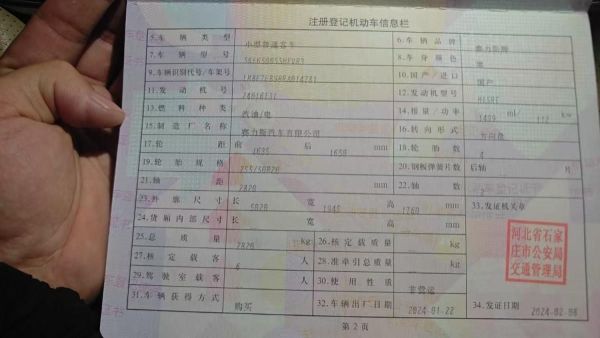 注册登记机动车信息栏
5.车辆类型 小型普通客车 6.车辆品牌
7.车辆型号 8.车身颜色 黑
9.车辆识别代号/车架号 10.国产/进口 国产
11.发动机号 12.发动机型号 H15RT
13.燃料种类 汽油/电 14.排量/功率 1499 ml/ kw
15.制造厂名称 赛力斯汽车有限公司 16.转向形式 方向盘
17.轮距 前 1635 后 1650 mm 18.轮胎数 4
19.轮胎规格 255/50R20 20.钢板弹簧片数 后轴 片
21.轴距 2820 mm 22.轴数 2
23.外廓尺寸 长 5020 宽 1945 高 1760 mm 33.发证机关章
24.货厢内部尺寸 长 宽 高 mm
河北省石家
庄市公安局
交通管理局
25.总质量 kg 26.核定载质量 kg
27.核定载客 6 人 28.准牵引总质量 kg
29.驾驶室载客 人 30.使用性质 非营运
31.车辆获得方式 购买 32.车辆出厂日期 2024-01-22 34.发证日期 2024-02-08
第 2 页